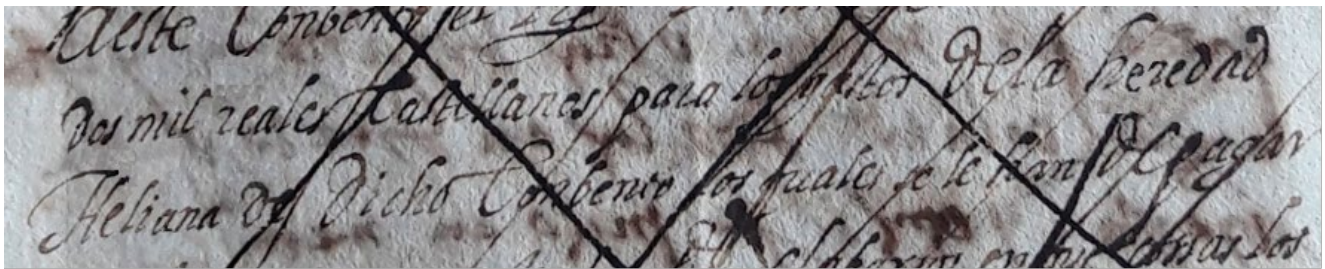 Deste Conbento
Dos mil reales Castellanos para los gastos De la heredad
Heliana De Dicho Conbento los quales se le han De pagar
los